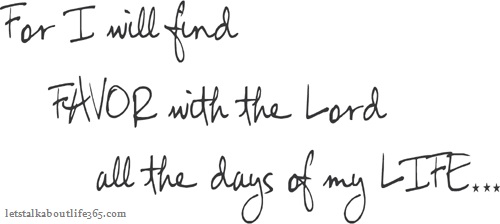 For I will find
FAVOR with the Lord
all the days of my LIFE...
letstalkaboutlife365.com